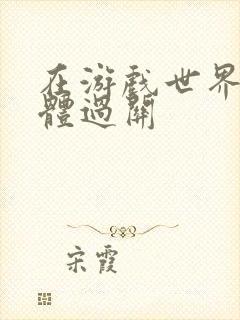 在游戲世界
體過關
宋霞